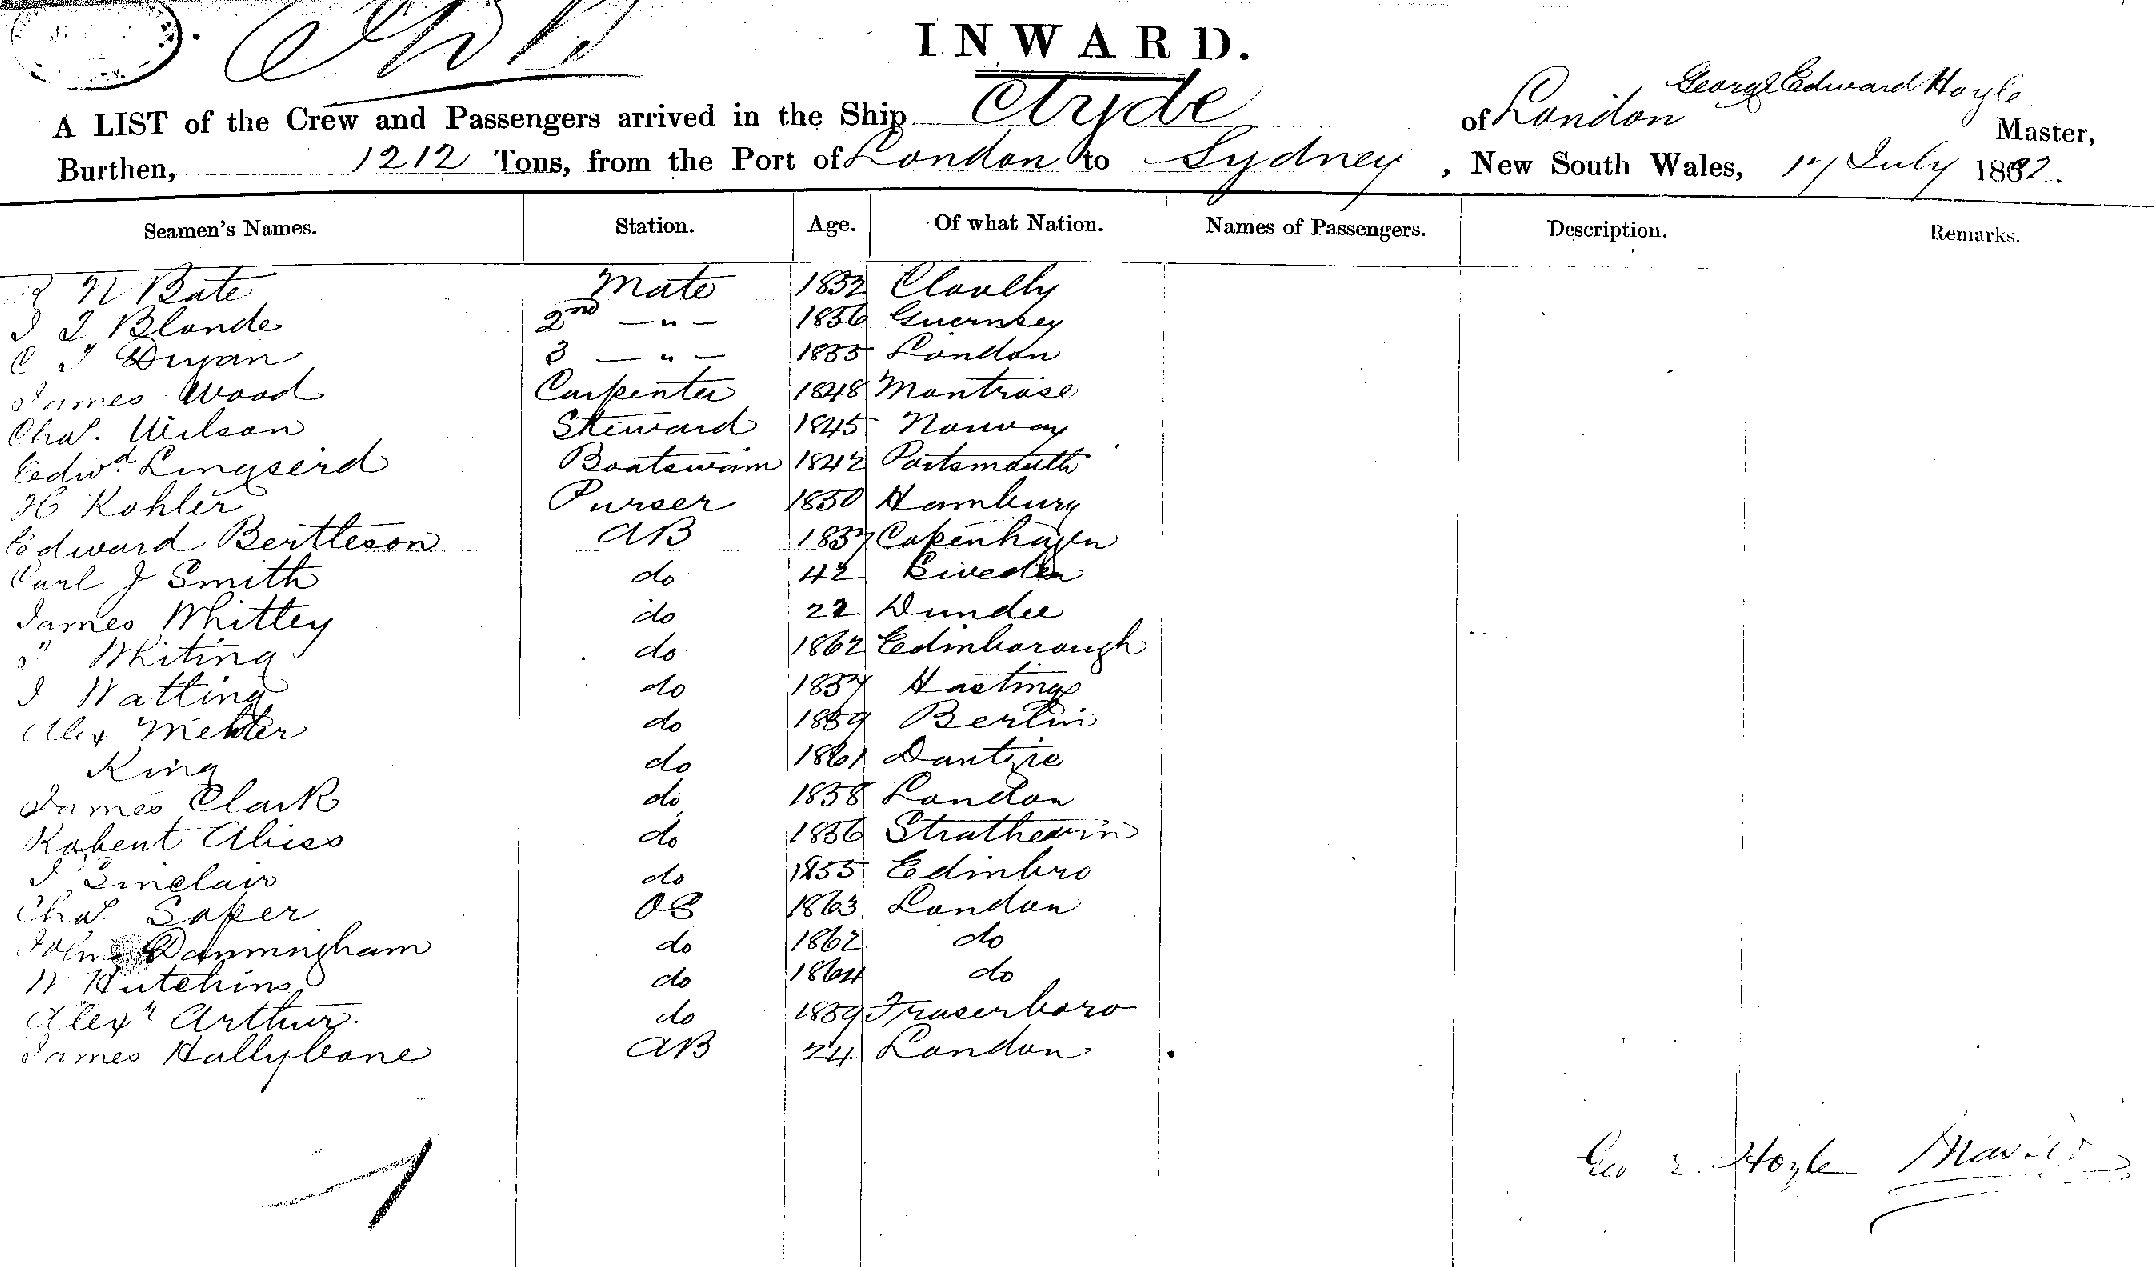 INWARD.
George Edward Hoyle
A LIST of the Crew and Passengers arrived in the Ship Clyde of London Master,
Burthen, 1212 Tons, from the Port of London to Sydney, New South Wales, 17 July 1882.
Seamen's Names. Station. Age. Of what Nation. Names of Passengers. Description. Remarks.
N Bate Mate 1832 Clovelly
Blonde 2nd — " — 1856 Guernsey
C Duyan 3 — " — 1855 London
James Wood Carpenter 1848 Montrose
Chas. Wilson Steward 1845 Norway
Edwd Lingserd Boatswain 1842 Portsmouth
H Kohler Purser 1850 Hamburg
Edward Bertleson AB 1857 Copenhagen
Carl J Smith do 42 Sweden
James Whittey do 22 Dundee
" Whiting do 1862 Edinborough
J Watting do 1857 Hastings
Alex do 1859 Berlin
King do 1861 Dantzic
James Clark do 1858 London
Robert Abiss do 1856
J Sinclair do 1855 Edinbro
Chas Soper OS 1863 London
John Danmingham do 1862 do
W Hutchins do 1864 do
Alexr Arthur do 1859 Fraserboro
James Hallybone AB 24 London
Geo E. Hoyle Master